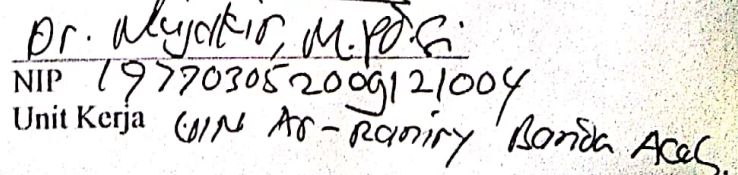 Dr. Mujakir, M.Pd.Si
NIP 197703052009121004
Unit Kerja UIN Ar-Raniry Banda Aceh.